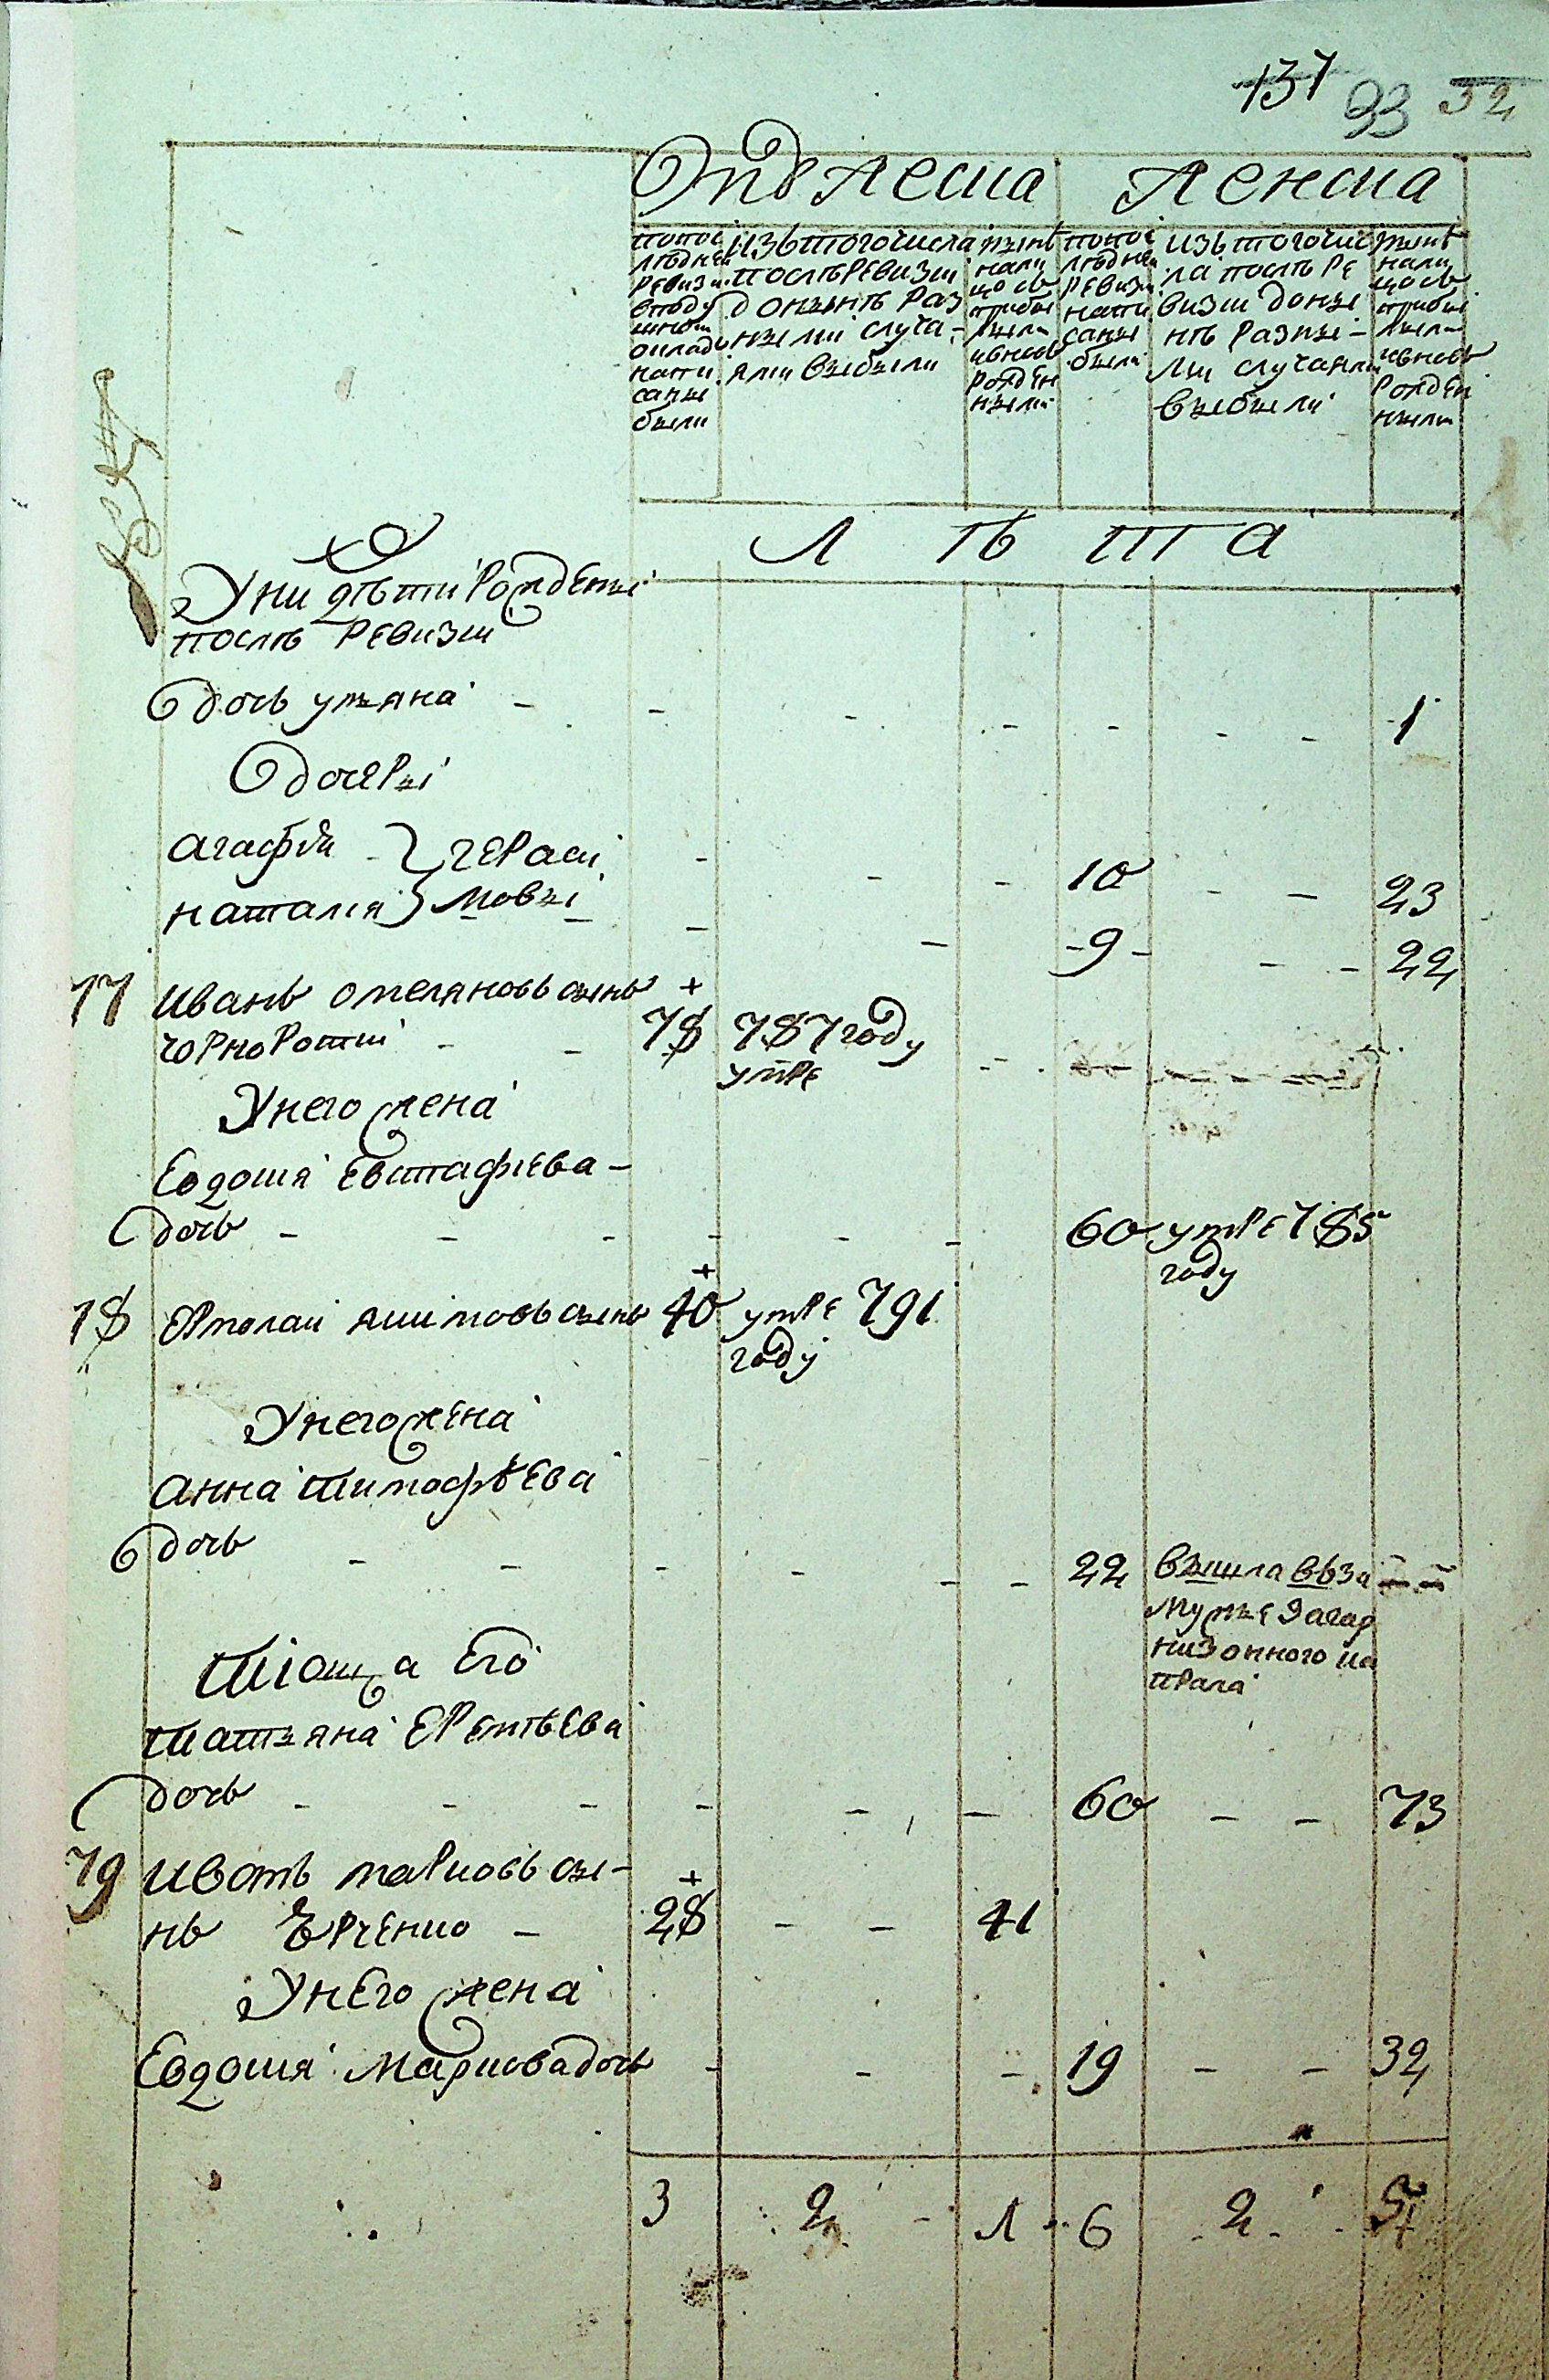 137 93 52
Мужеска Женска
по пос
ледней
ревизи
в поду
шном
окладе
напи
саны
были
изъ того числа
после ревизии
до ныне раз
ными случа-
ями выбыли
ныне
нали
цо съ
прибы
лыми
и вновь
рожден
ными
по пос
ледней
ревизи
напи
саны
были
изъ того чис
ла после ре
визии до ны
не разны-
ми случаями
выбыли
ныне
нали
цо съ
прибы
лыми
и вновь
рожден
ными
Л ѣ т а
У них дѣти рожденны
послѣ ревизии
дочь уляна - - - - - - - 1
дочеры
агафия } гераси - - - 10 - - 23
наталия } мовы - - -9- - - 22
77 иванъ омеляновъ сынъ +
чорноротий - - 78 787 году
умре
У него жена
Евдокия Евстафиева -
дочь - - - - - - 60 умре 785
году
78 Ермолай якимовъ сынъ + 40 умре 791
году
У него жена
анна тимофѣева
дочь - - - - - - 22 вышла въ за
мужье за гар
низонного ка
прала
тіоща его
татьяна Еремѣева
дочь - - - - - - 60 - - 73
79 иванъ марковъ сы-
нъ Юрченко - + 28 - - 41
У него жена
Евдокия маркова дочь - - - 19 - - 32
3 2 1 6 2 5